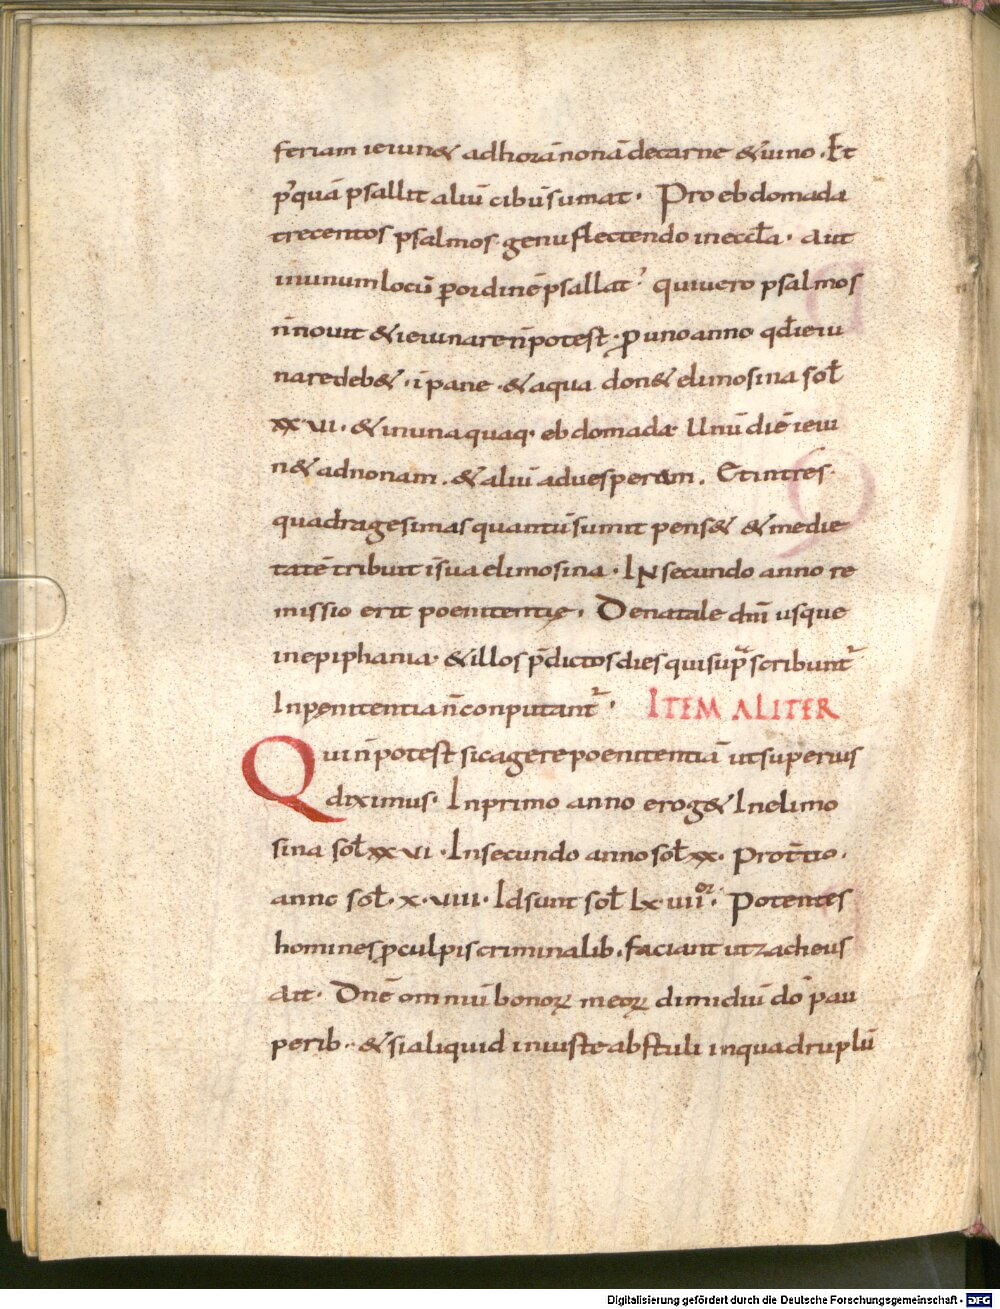 feriam ieiun& adhorā nonā decarne &uino. Et
p᷑quā psallit aliū cibū sumat. Pro ebdomada
trecentos psalmos genu flectendo ineccła. aut
inunum locū ꝑordinē psallat᷑ quiuero psalmos
n̄ nouit &ieiunare n̄ potest. ꝓ uno anno qđ ieiu
naredeb&. i pane. &aqua don& elimosina sol̄
xxvi. &inunaquaq· ebdomada Unū diē ieiu
n& adnonam. &aliū aduesperam. Etintres
quadragesimas quantū sumit pens& &medie
tatē tribuit ī sua elimosina. INsecundo anno re
missio erit poenitentię. Denatale dn̄i usque
inepiphania &illos p̄dictos dies qui sup̄ scribunt᷑
In penitentia n̄ conputant᷑. ITEM ALITER
Qui n̄ potest sic agere poenitentiā ut superius
diximus. Inprimo anno erog& Inelimo
sina sol̄ xxvi. Insecundo anno sol̄ xx. Protťio.
anno sol̄. x.viiii. Id sunt sol̄ lx.iiii^or. Potentes
homines ꝓculpis criminalib. faciant ut zacheus
ait. Dn̄e omniū bonoꝝ meoꝝ dimidiū do pau
perib.. &si aliquid iniuste abstuli inquadruplū
Digitalisierung gefördert durch die Deutsche Forschungsgemeinschaft - DFG